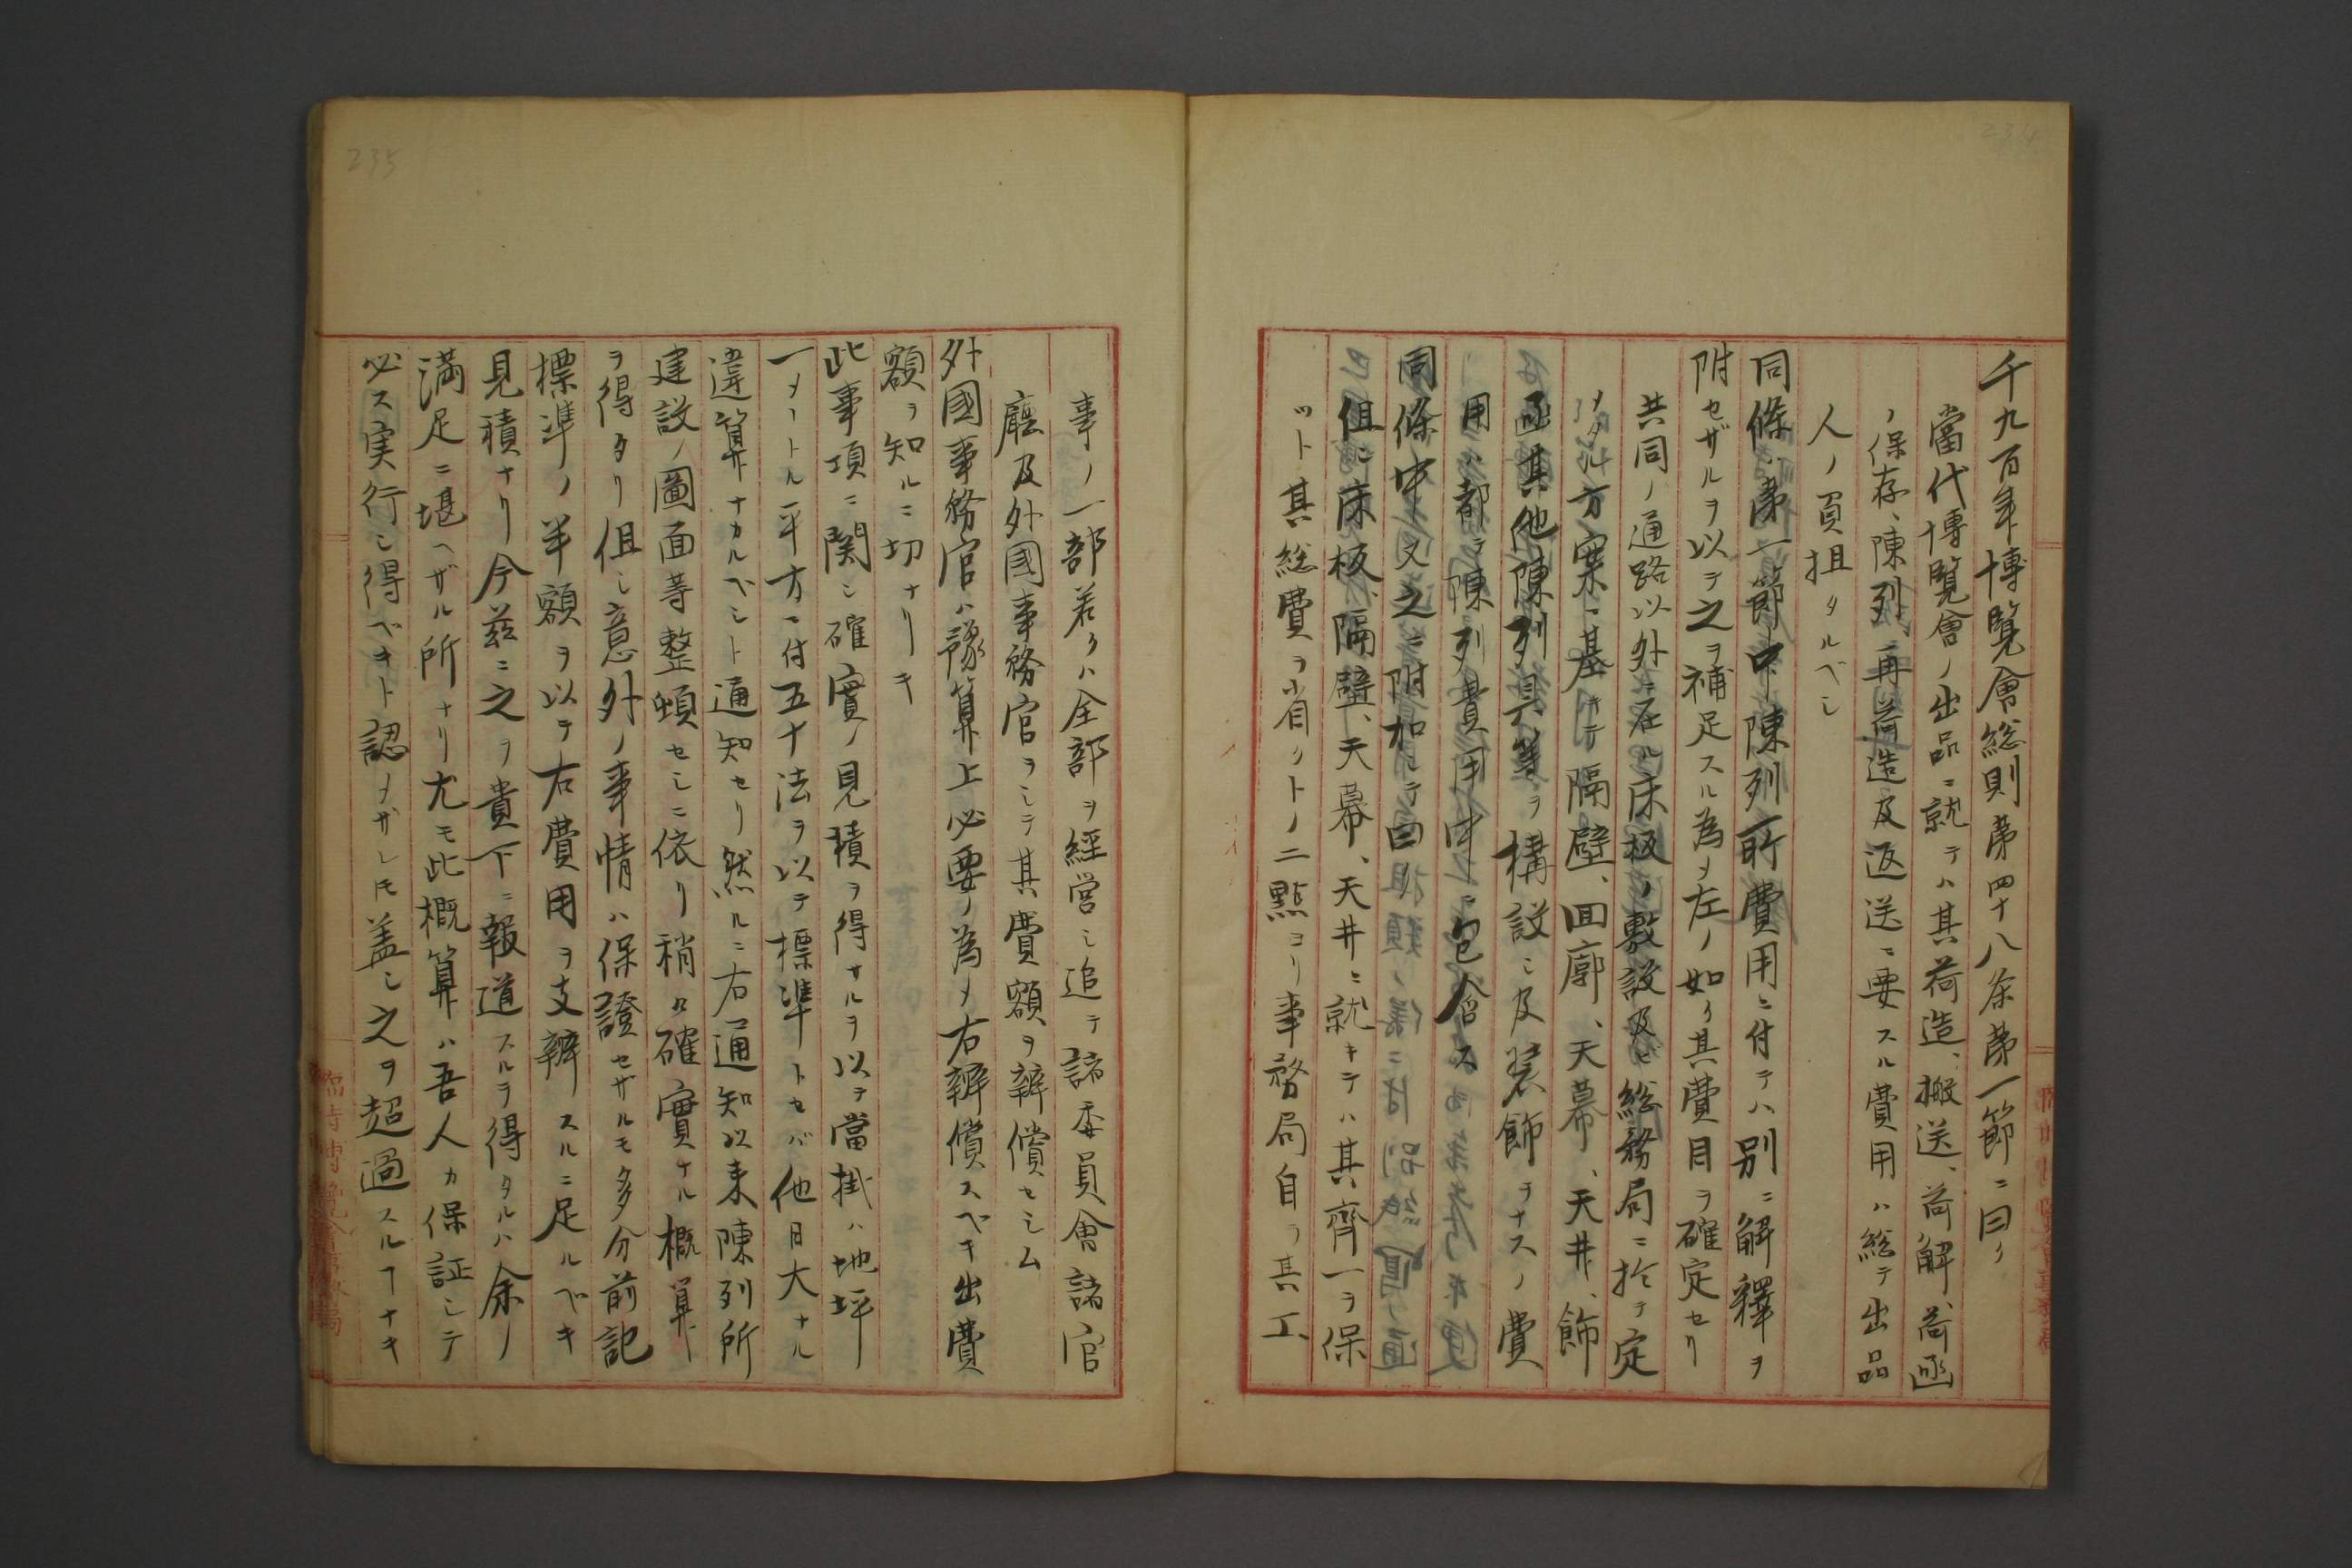 234
千九百年博覧會総則第四十八条第一節ニ曰ク
當代博覧會ノ出品ニ就テハ其荷造、搬送、荷解、荷函
ノ保存、陳列、再荷造及返送ニ要スル費用ハ総テ出品
人ノ負担タルベシ
同條ハ第一節中陳列所費用ニ付テハ別ニ解釋ヲ
附セザルヲ以テ之ヲ補足スル為メ左ノ如ク其費目ヲ確定セリ
共同ノ通路以外ニ在ル床板ノ敷設及ビ総務局ニ於テ定
メタル方案ニ基キテ隔壁、回廓、天幕、天井、飾
函其他陳列具等ヲ構設シ及装飾ヲナスノ費
用ハ都テ陳列費用中ニ包含ス
同條中又之ニ附加シテ曰ク
但シ床板、隔壁、天幕、天井ニ就キテハ其齊一ヲ保
ツト其総費ヲ省クトノ二點ヨリ事務局自ラ其工
235
事ノ一部若クハ全部ヲ経営シ追テ諸委員會諸官
廳及外國事務官ヲシテ其費額ヲ辨償セシム
外國事務官ハ豫算上必要ノ為メ右辨償スベキ出費
額ヲ知ルニ切ナリキ
此事項ニ関シ確實ノ見積ヲ得サルヲ以テ當掛ハ地坪
一メートル平方ニ付五十法ヲ以テ標準トセバ他日大ナル
違算ナカルベシト通知セリ然ルニ右通知以来陳列所
建設ノ圖面等整頓セシニ依リ稍々確實ナル概算
ヲ得タリ但シ意外ノ事情ハ保證セザルモ多分前記
標準ノ半額ヲ以テ右費用ヲ支辨スルニ足ルベキ
見積ナリ今茲ニ之ヲ貴下ニ報道スルヲ得タルハ余ノ
満足ニ堪ヘザル所ナリ尤モ此概算ハ吾人カ保証シテ
必ス実行シ得ベキト認メザレ𪜈蓋シ之ヲ超過スルヿナキ
臨時博覧會事務局